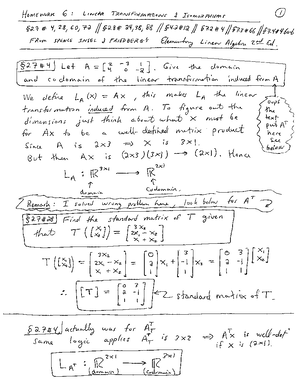 HOMEWORK 6: LINEAR TRANSFORMATIONS & ISOMORPHISMS
①
FROM SPENCE INSEL & FRIEDBERG'S Elementary Linear Algebra 2nd Ed.
§2.7#4 Let A = [ ]. Give the domain
and codomain of the linear transformation induced from A
We define L_A(x) = Ax, this makes L_A the linear
transformation induced from A. To figure out the
dimensions just think about what X must be
for Ax to be a well-defined matrix product
Since A is 2x3 ⇒ X is 3x1.
But then Ax is (2x3)(3x1) → (2x1). Hence
oops
the
text
put Aᵀ
here
see
below
L_A : ℝ³ˣ¹ → ℝ²ˣ¹
domain codomain
Remark: I solved wrong problem here, look below for Aᵀ
§2.7#28 Find the standard matrix of T given
that T([x₁ x₂]) = [3x₂ 2x₁ - x₂ x₁ + x₂]
T([x₁ x₂]) = [3x₂ 2x₁ - x₂ x₁ + x₂] = [0 2 1] x₁ + [3 -1 1] x₂ = [0 3 2 -1 1 1] [x₁ x₂]
∴ [T] = [0 3 2 -1 1 1] standard matrix of T.
§2.7#4, actually was for Aᵀ
same logic applies Aᵀ is 3x2 ⇒ Aᵀx is well-def'd
if X is (2x1).
L_Aᵀ : ℝ²ˣ¹ → ℝ³ˣ¹
(domain) (codomain)